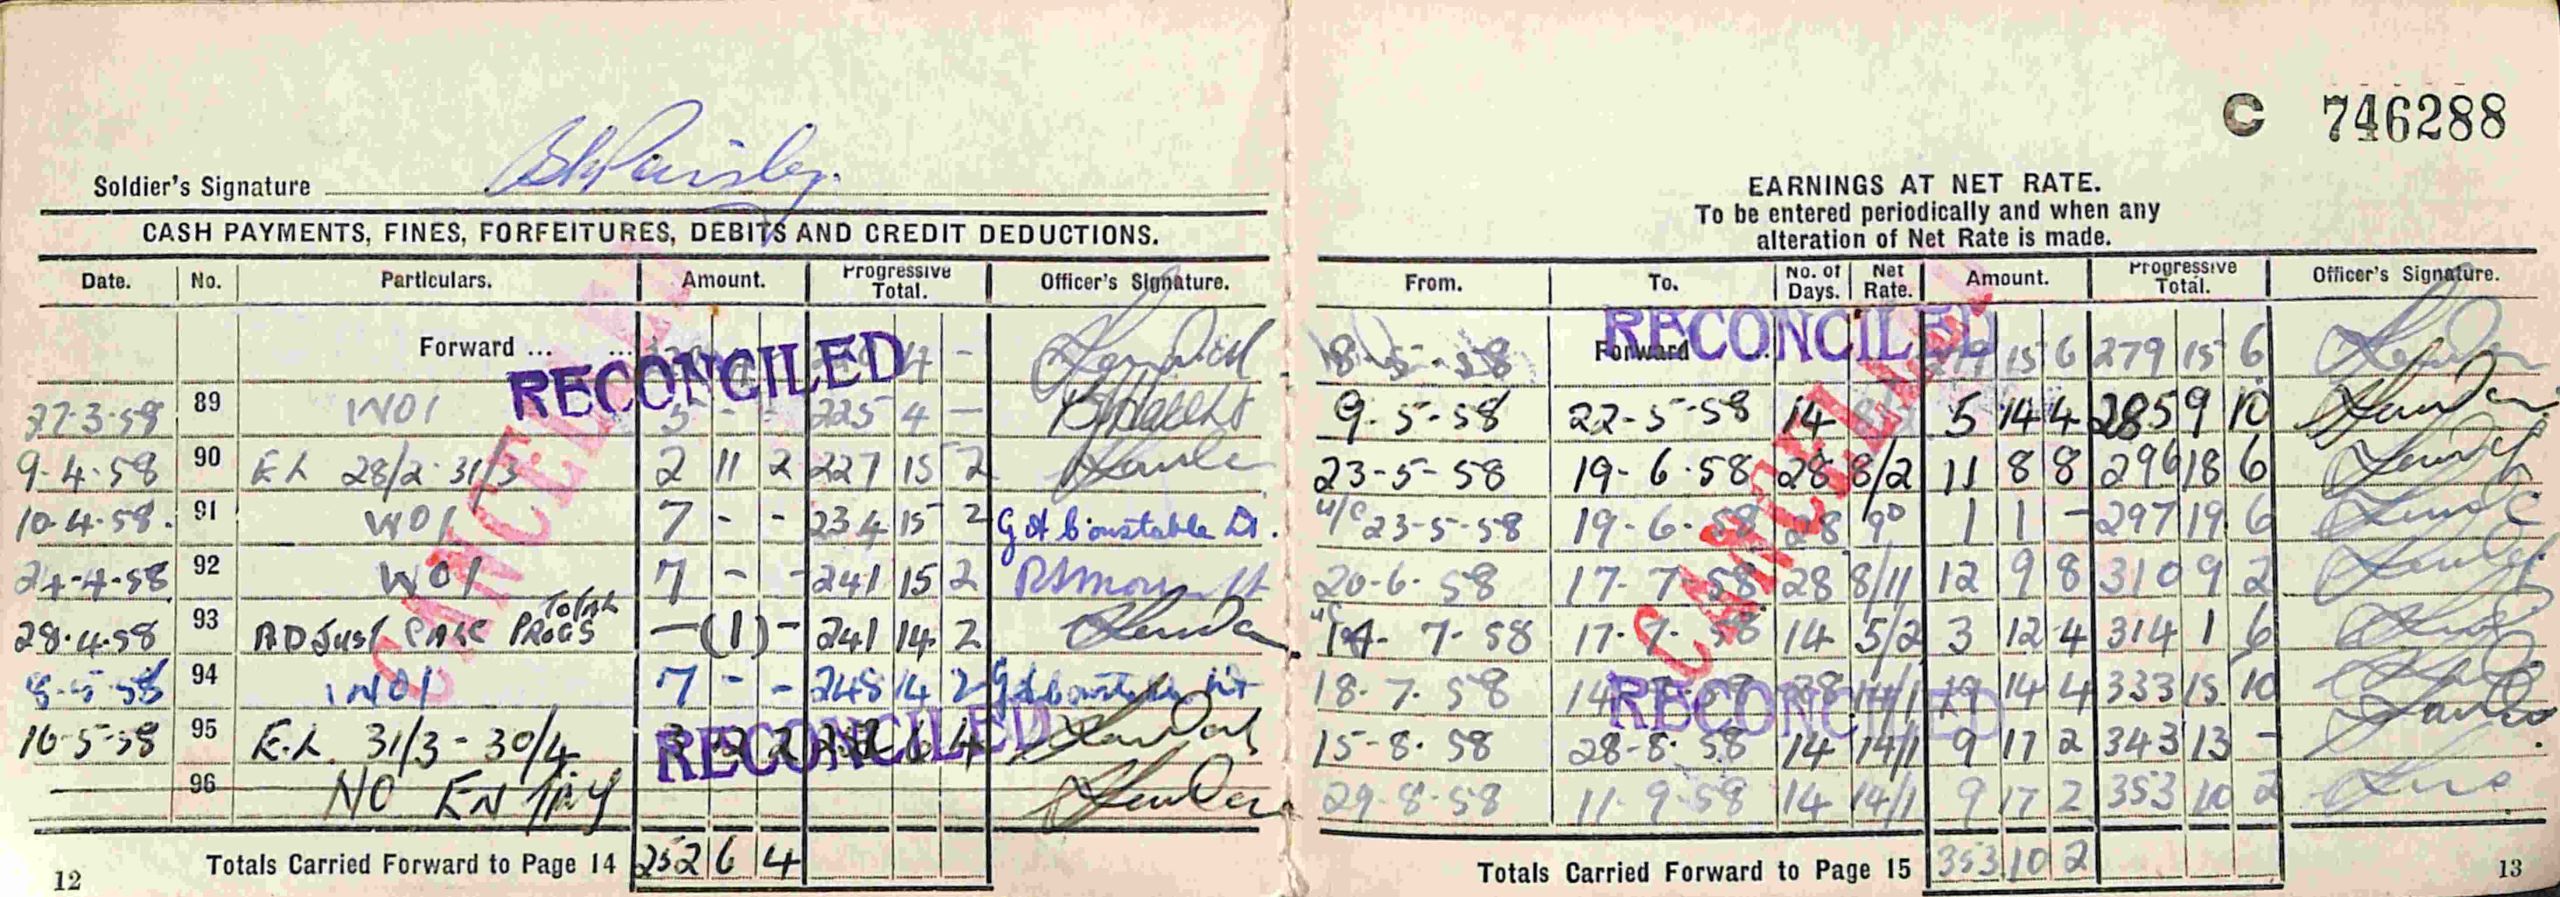 Soldier's Signature
CASH PAYMENTS, FINES, FORFEITURES, DEBITS AND CREDIT DEDUCTIONS.
Date. No. Particulars. Amount. Progressive Total. Officer's Signature.
Forward ... ... 4 -
RECONCILED
CANCELLED
27-3-58 89 5 - - 225 4 -
9-4-58 90 28/2 - 31/3 2 11 2 227 15 2
10-4-58. 91 W01 7 - - 234 15 2 G A Constable Lt.
24-4-58 92 W01 7 - - 241 15 2
28-4-58 93 ADJUST PAGE PROGS TOTAL - (1) - 241 14 2
8-5-58 94 7 - - 248 14 2 G A Constable Lt
16-5-58 95 31/3 - 30/4 252 6 4
RECONCILED
96 NO ENTRY
Totals Carried Forward to Page 14 252 6 4
12
C 746288
EARNINGS AT NET RATE.
To be entered periodically and when any
alteration of Net Rate is made.
From. To. No. of Days. Net Rate. Amount. Progressive Total. Officer's Signature.
8-5-58 Forward 279 15 6 279 15 6
RECONCILED
CANCELLED
9-5-58 22-5-58 14 5 14 4 285 9 10
23-5-58 19-6-58 28 8/2 11 8 8 296 18 6
23-5-58 19-6-58 28 9D 1 1 - 297 19 6
20-6-58 17-7-58 28 8/11 12 9 8 310 9 2
4-7-58 17-7-58 14 5/2 3 12 4 314 1 6
18-7-58 28 14/1 19 14 4 333 15 10
RECONCILED
15-8-58 28-8-58 14 14/1 9 17 2 343 13 -
29-8-58 11-9-58 14 14/1 9 17 2 353 10 2
Totals Carried Forward to Page 15 353 10 2
13